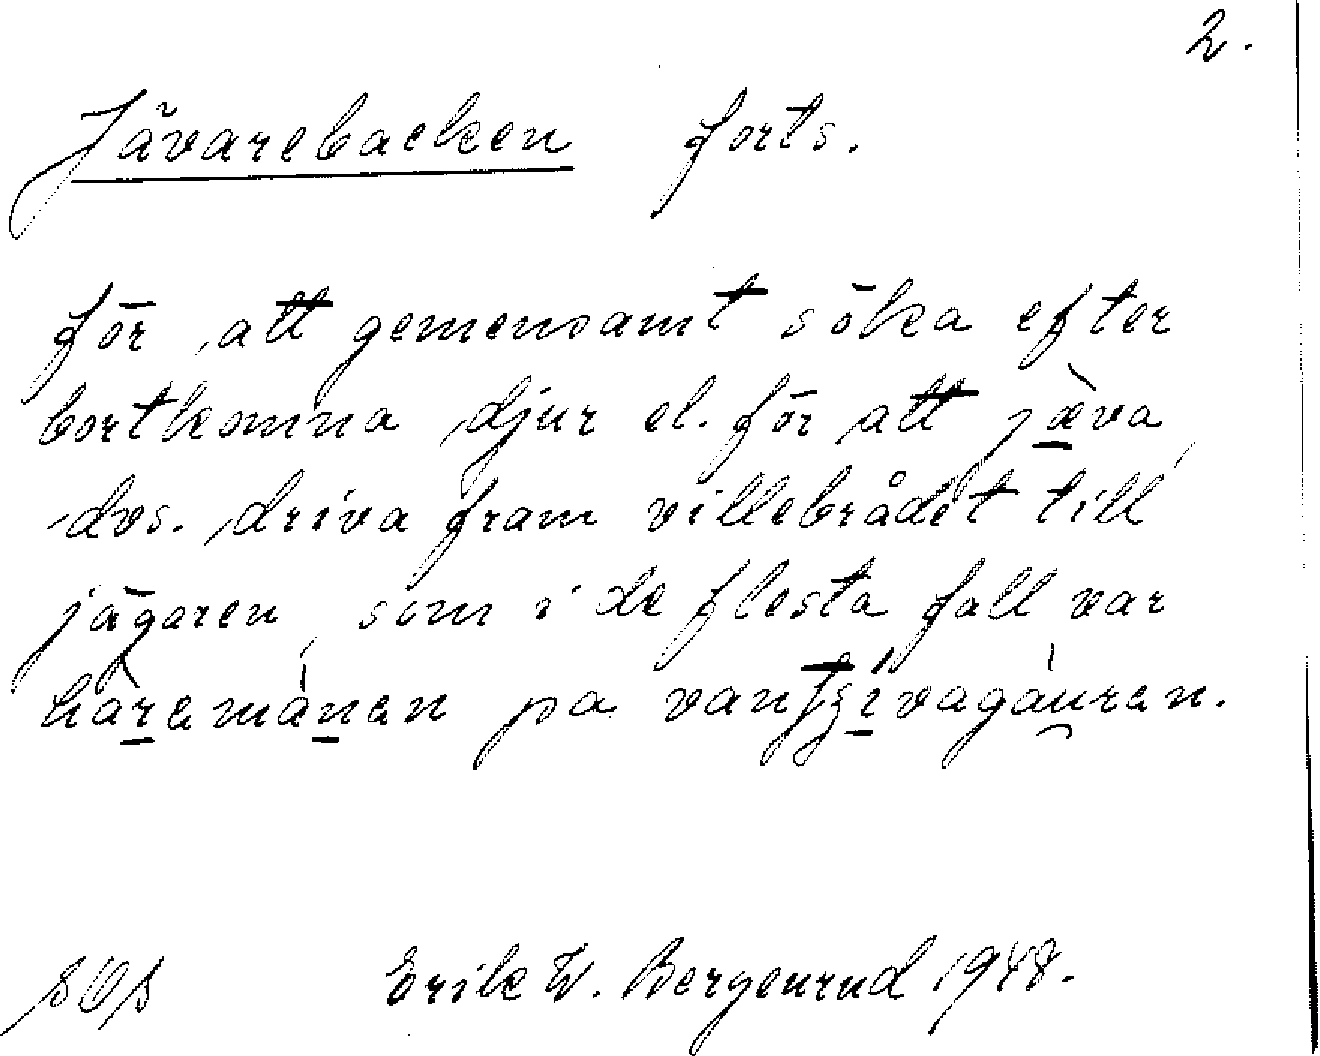 2.
Jävarebacken forts.
för att gemensamt söka efter
bortkomna djur el. för att jæ̀va,
dvs. driva fram villebrådet till
jägaren, som i de flesta fall var
på
Erik W. Bergenrud 1948.